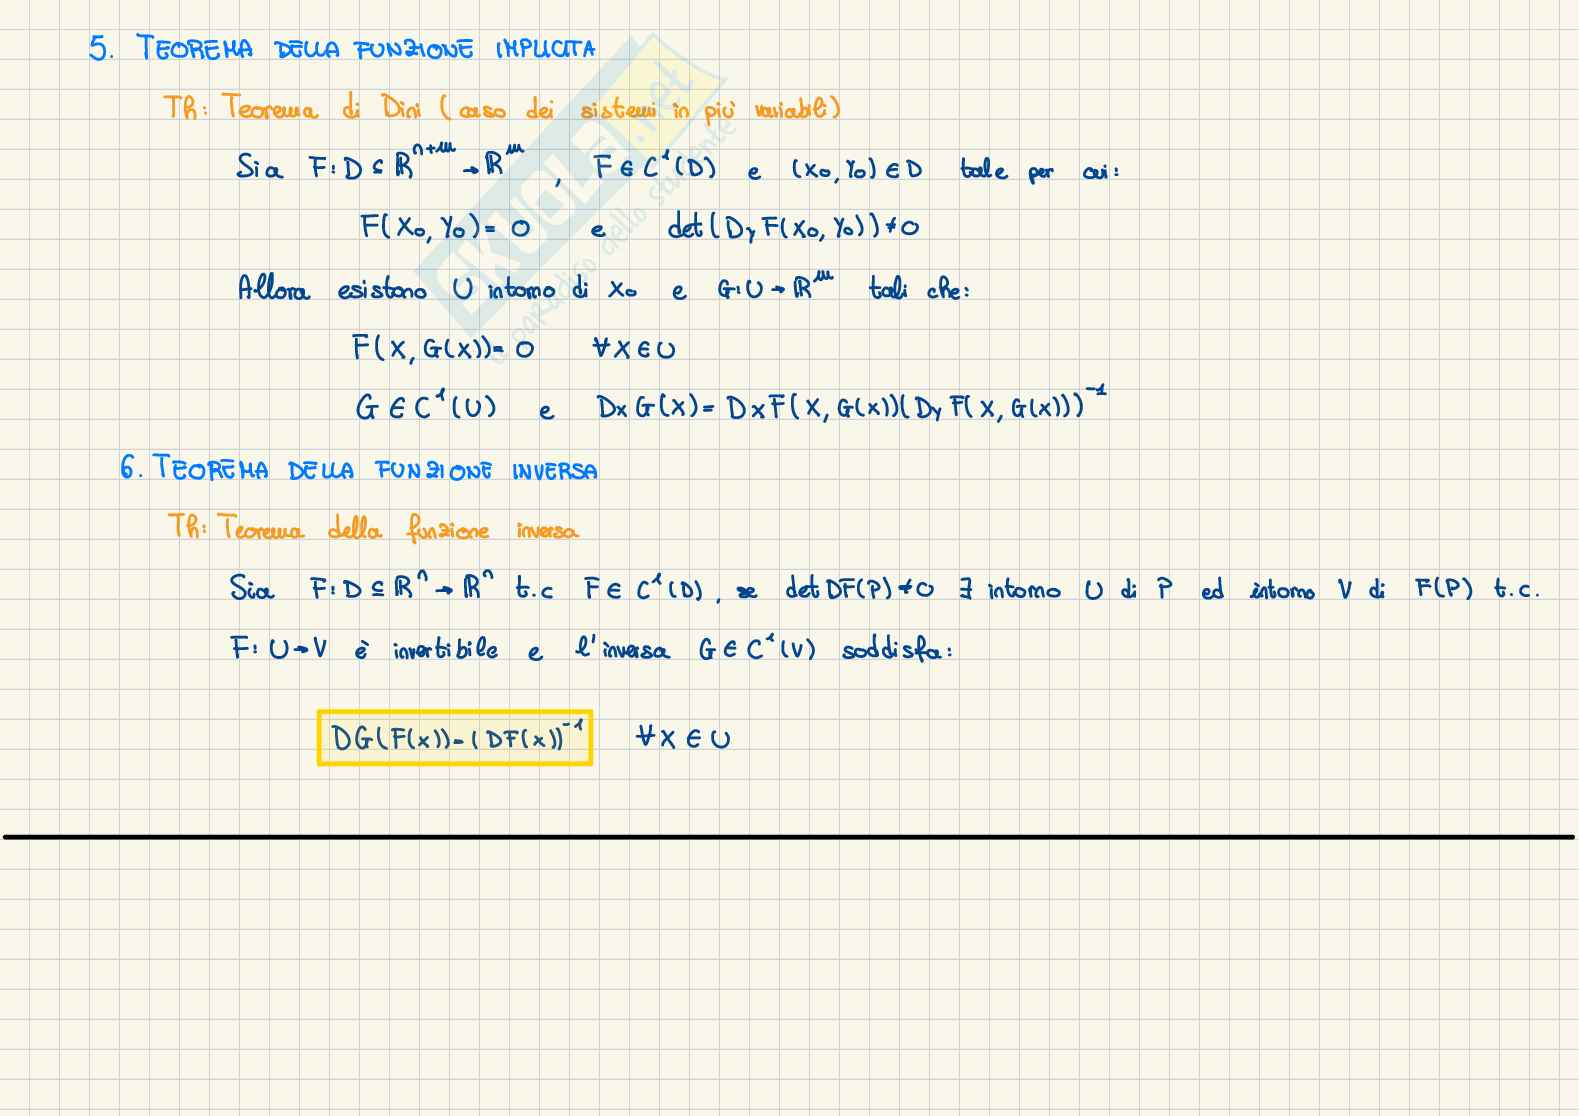 5. TEOREMA DELLA FUNZIONE IMPLICITA
Th: Teorema di Dini (caso dei sistemi in più variabili)
Sia F: D ⊆ ℝⁿ⁺ᵐ → ℝᵐ, F ∈ C¹(D) e (x₀, y₀) ∈ D tale per cui:
F(x₀, y₀) = 0 e det(D_y F(x₀, y₀)) ≠ 0
Allora esistono U intorno di x₀ e G: U → ℝᵐ tali che:
F(x, G(x)) = 0 ∀x ∈ U
G ∈ C¹(U) e D_x G(x) = D_x F(x, G(x))(D_y F(x, G(x)))⁻¹
6. TEOREMA DELLA FUNZIONE INVERSA
Th: Teorema della funzione inversa
Sia F: D ⊆ ℝⁿ → ℝⁿ t.c F ∈ C¹(D), se det DF(P) ≠ 0 ∃ intorno U di P ed intorno V di F(P) t.c.
F: U → V è invertibile e l'inversa G ∈ C¹(V) soddisfa:
DG(F(x)) = (DF(x))⁻¹ ∀x ∈ U
SKUOLA.net
il paradiso dello studente